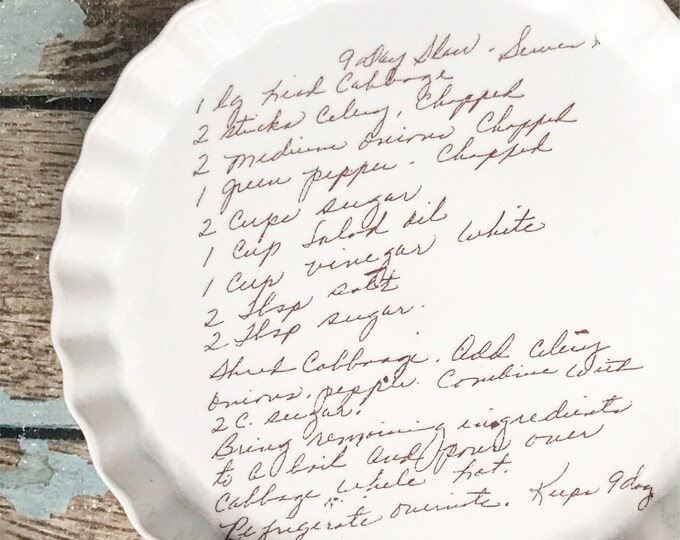 9 Day Slaw - Serves
1 Lg Head Cabbage
2 sticks Celery, Chopped
2 Medium Onions Chopped
1 green pepper - Chopped
2 Cups sugar
1 Cup Salad oil
1 Cup vinegar White
2 Tbsp salt
2 Tbsp sugar.
Shred Cabbage. Add Celery
Onions, pepper. Combine with
2 C. sugar.
Bring remaining ingredients
to a boil and pour over
Cabbage while hot.
Refrigerate overnite. Keeps 9 day